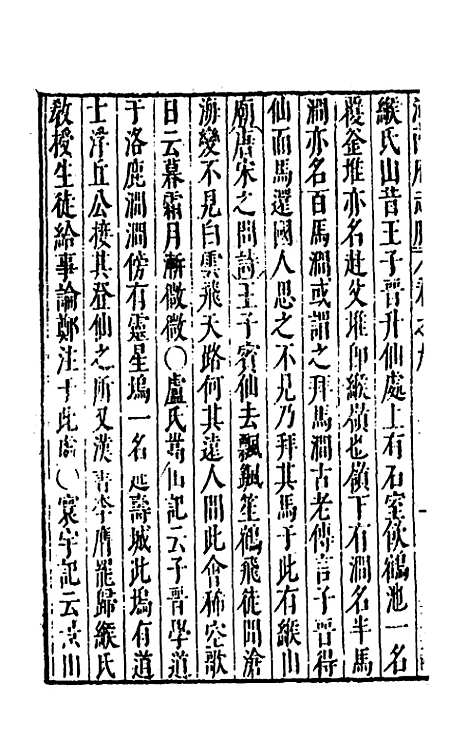 緱氏山昔王子晋升仙處上有石室飲鶴池一名
覆釜堆亦名赴父堆即緱嶺也嶺下有澗名半馬
澗亦名百馬澗或謂之拜馬澗古老傳言子晋得
仙而馬還國人思之不見乃拜其馬于此有緱山
廟唐宋之問詩王子賓仙去飄飖笙鶴飛徒聞滄
海變不見白雲飛天路何其遠人間此會稀空歌
日云暮霜月漸微微〇盧氏嵩仙記云子晋學道
于洛鹿澗澗傍有靈星塢一名延壽城此塢有道
士浮丘公接其登仙之所又漢書李膺罷歸緱氏
教授生徒給事論鄭注于此處〇寰宇記云景山